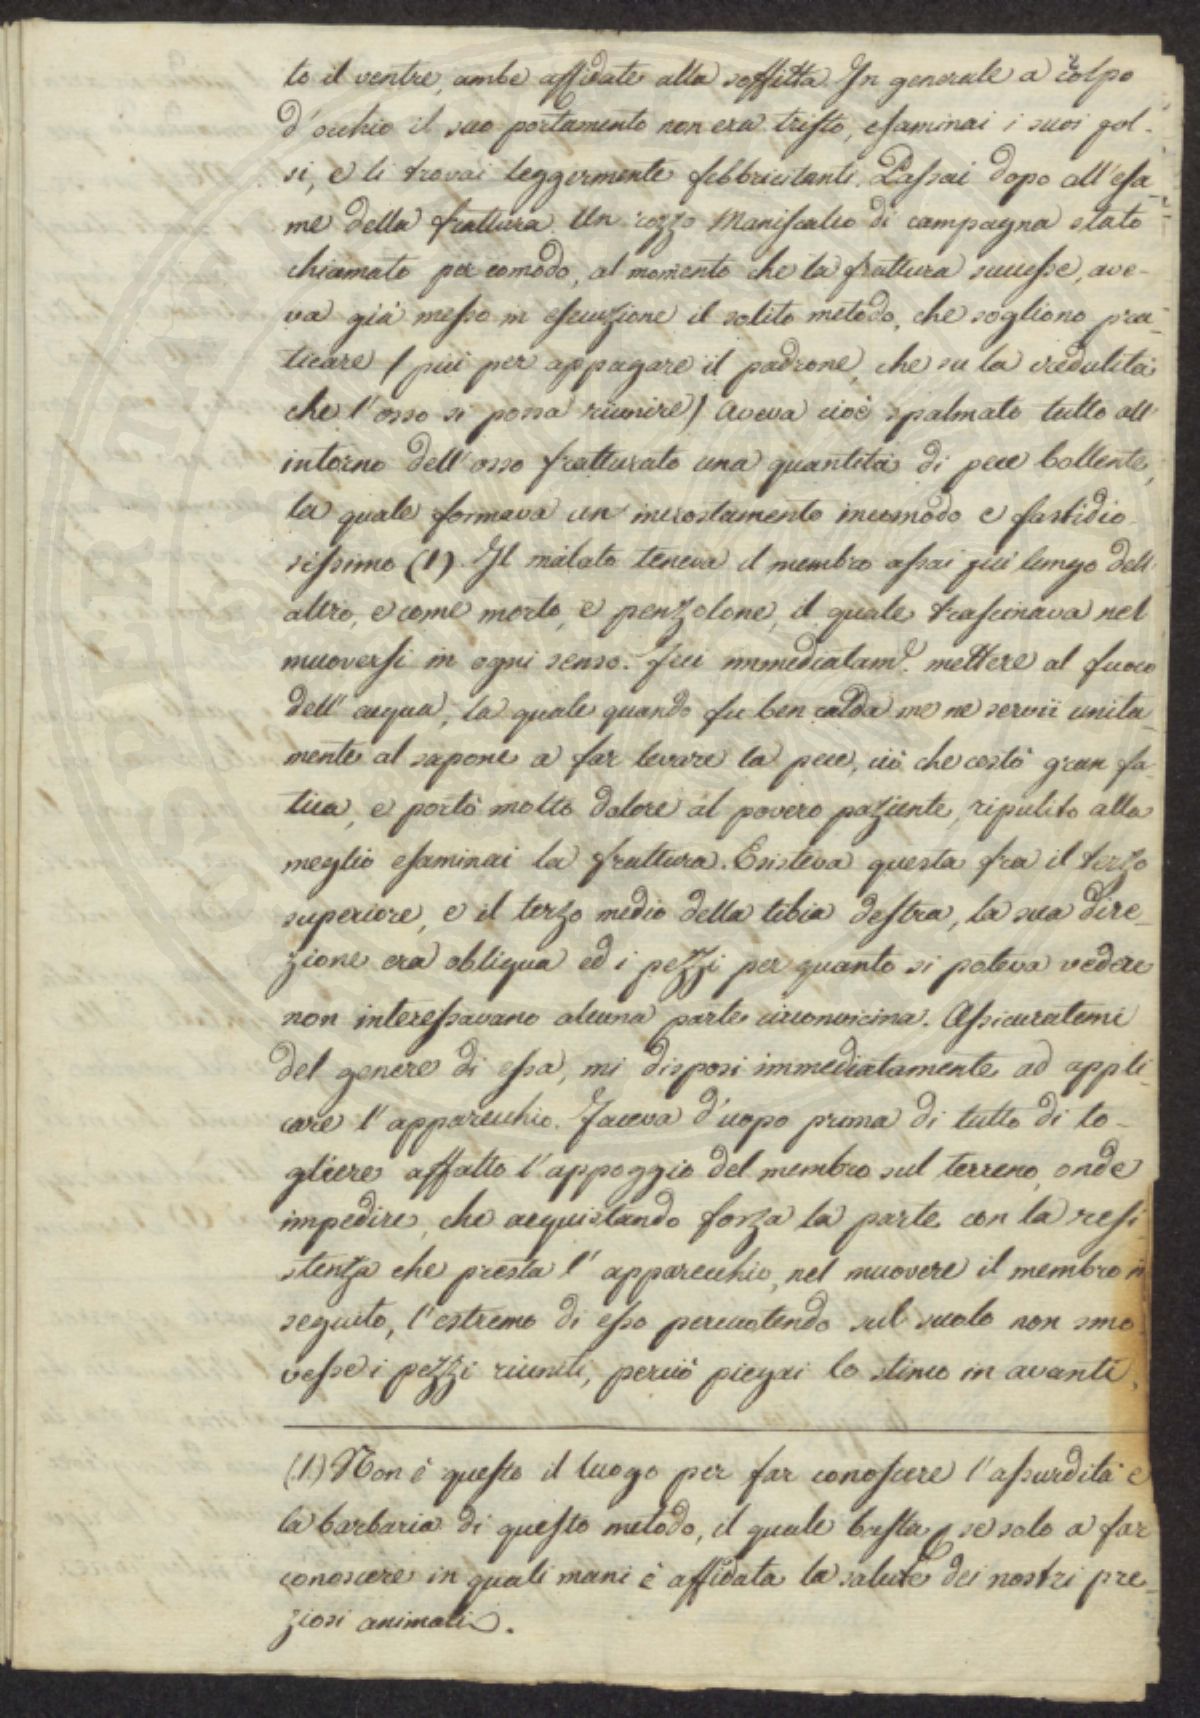 to il ventre, ambe affidate alla soffitta. In generale a colpo
d'occhio il suo portamento non era tristo, esaminai i suoi pol-
si, e li trovai leggermente febbricitanti. Passai dopo all'esa-
me della frattura. Un rozzo Maniscalco di campagna stato
chiamato per comodo, al momento che la frattura successe, ave-
va già messo in esecuzione il solito metodo, che sogliono pra-
ticare / più per appagare il padrone, che su la credulità
che l'osso si possa riunire / Aveva cioè spalmato tutto all'
intorno dell'osso fratturato una quantità di pece bollente,
la quale formava un incrostamento incomodo e fastidio-
sissimo (1). Il malato teneva il membro assai più lungo dell'
altro, e come morto, e penzolone, il quale trascinava nel
muoversi in ogni senso. Feci immediatam.e mettere al fuoco
dell'acqua, la quale quando fu ben calda me ne servii unita-
mente al sapone a far levare la pece, ciò che costò gran fa-
tica, e portò molto dolore al povero paziente, ripulito alla
meglio esaminai la frattura. Esisteva questa fra il terzo
superiore, e il terzo medio della tibia destra, la sua dire-
zione era obliqua ed i pezzi per quanto si poteva vedere
non interessavano alcuna parte circonvicina. Assicuratomi
del genere di essa, mi disposi immediatamente ad appli-
care l'apparecchio. Faceva d'uopo prima di tutto di to-
gliere affatto l'appoggio del membro sul terreno, onde
impedire, che acquistando forza la parte con la resi-
stenza che presta l'apparecchio, nel muovere il membro in
seguito, l'estremo di esso percuotendo sul suolo non smo-
vesse i pezzi riuniti, perciò piegai lo stinco in avanti,
(1.) Non è questo il luogo per far conoscere l'assurdità e
la barbaria di questo metodo, il quale basta per se solo a far
conoscere in quali mani è affidata la salute dei nostri pre-
ziosi animali.